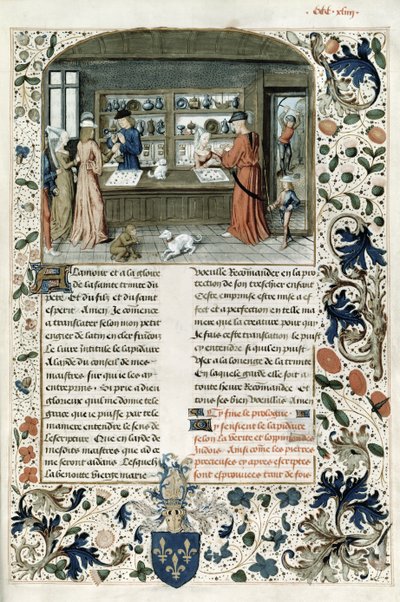 CCC · xliiij
A Lamour et a la gloire
de la sainte trinite du
pere Et du filz et du saint
esperit Amen Je comence
a translater selon mon petit
engiet de latin en cler francois
Le livre intitule le lapidaire
A layde du conseil de mes
maistres sur qui ie lay
entreprins Si prie a dieu
glorieux qui me donne tele
grace que ie puisse par tele
maniere entendre le sens de
lescripture Que en larde de
mesdits maistres que ad ce
me seront aidans Lesquelz
la benoitte vierge marie
voeulle Recommander en la pro
tection de son treschier enfant
Ceste emprise estre mise a ef
fect et a perfection en telle ma
niere que la creature pour qui
Je fais ceste translation le puist
cy entendre Et quelle en puist
user a la loenge de la trinite
En laquele garde elle soit a
toute heure Recommandee Et
tous ses bien voeullans Amen
Cy fine le prologue
Cy sensieut le lapidaire
selon la verite et loppinion des
indois Ainsi come les pierres
precieuses cy apres escriptes
sont esprouvees tant de fois